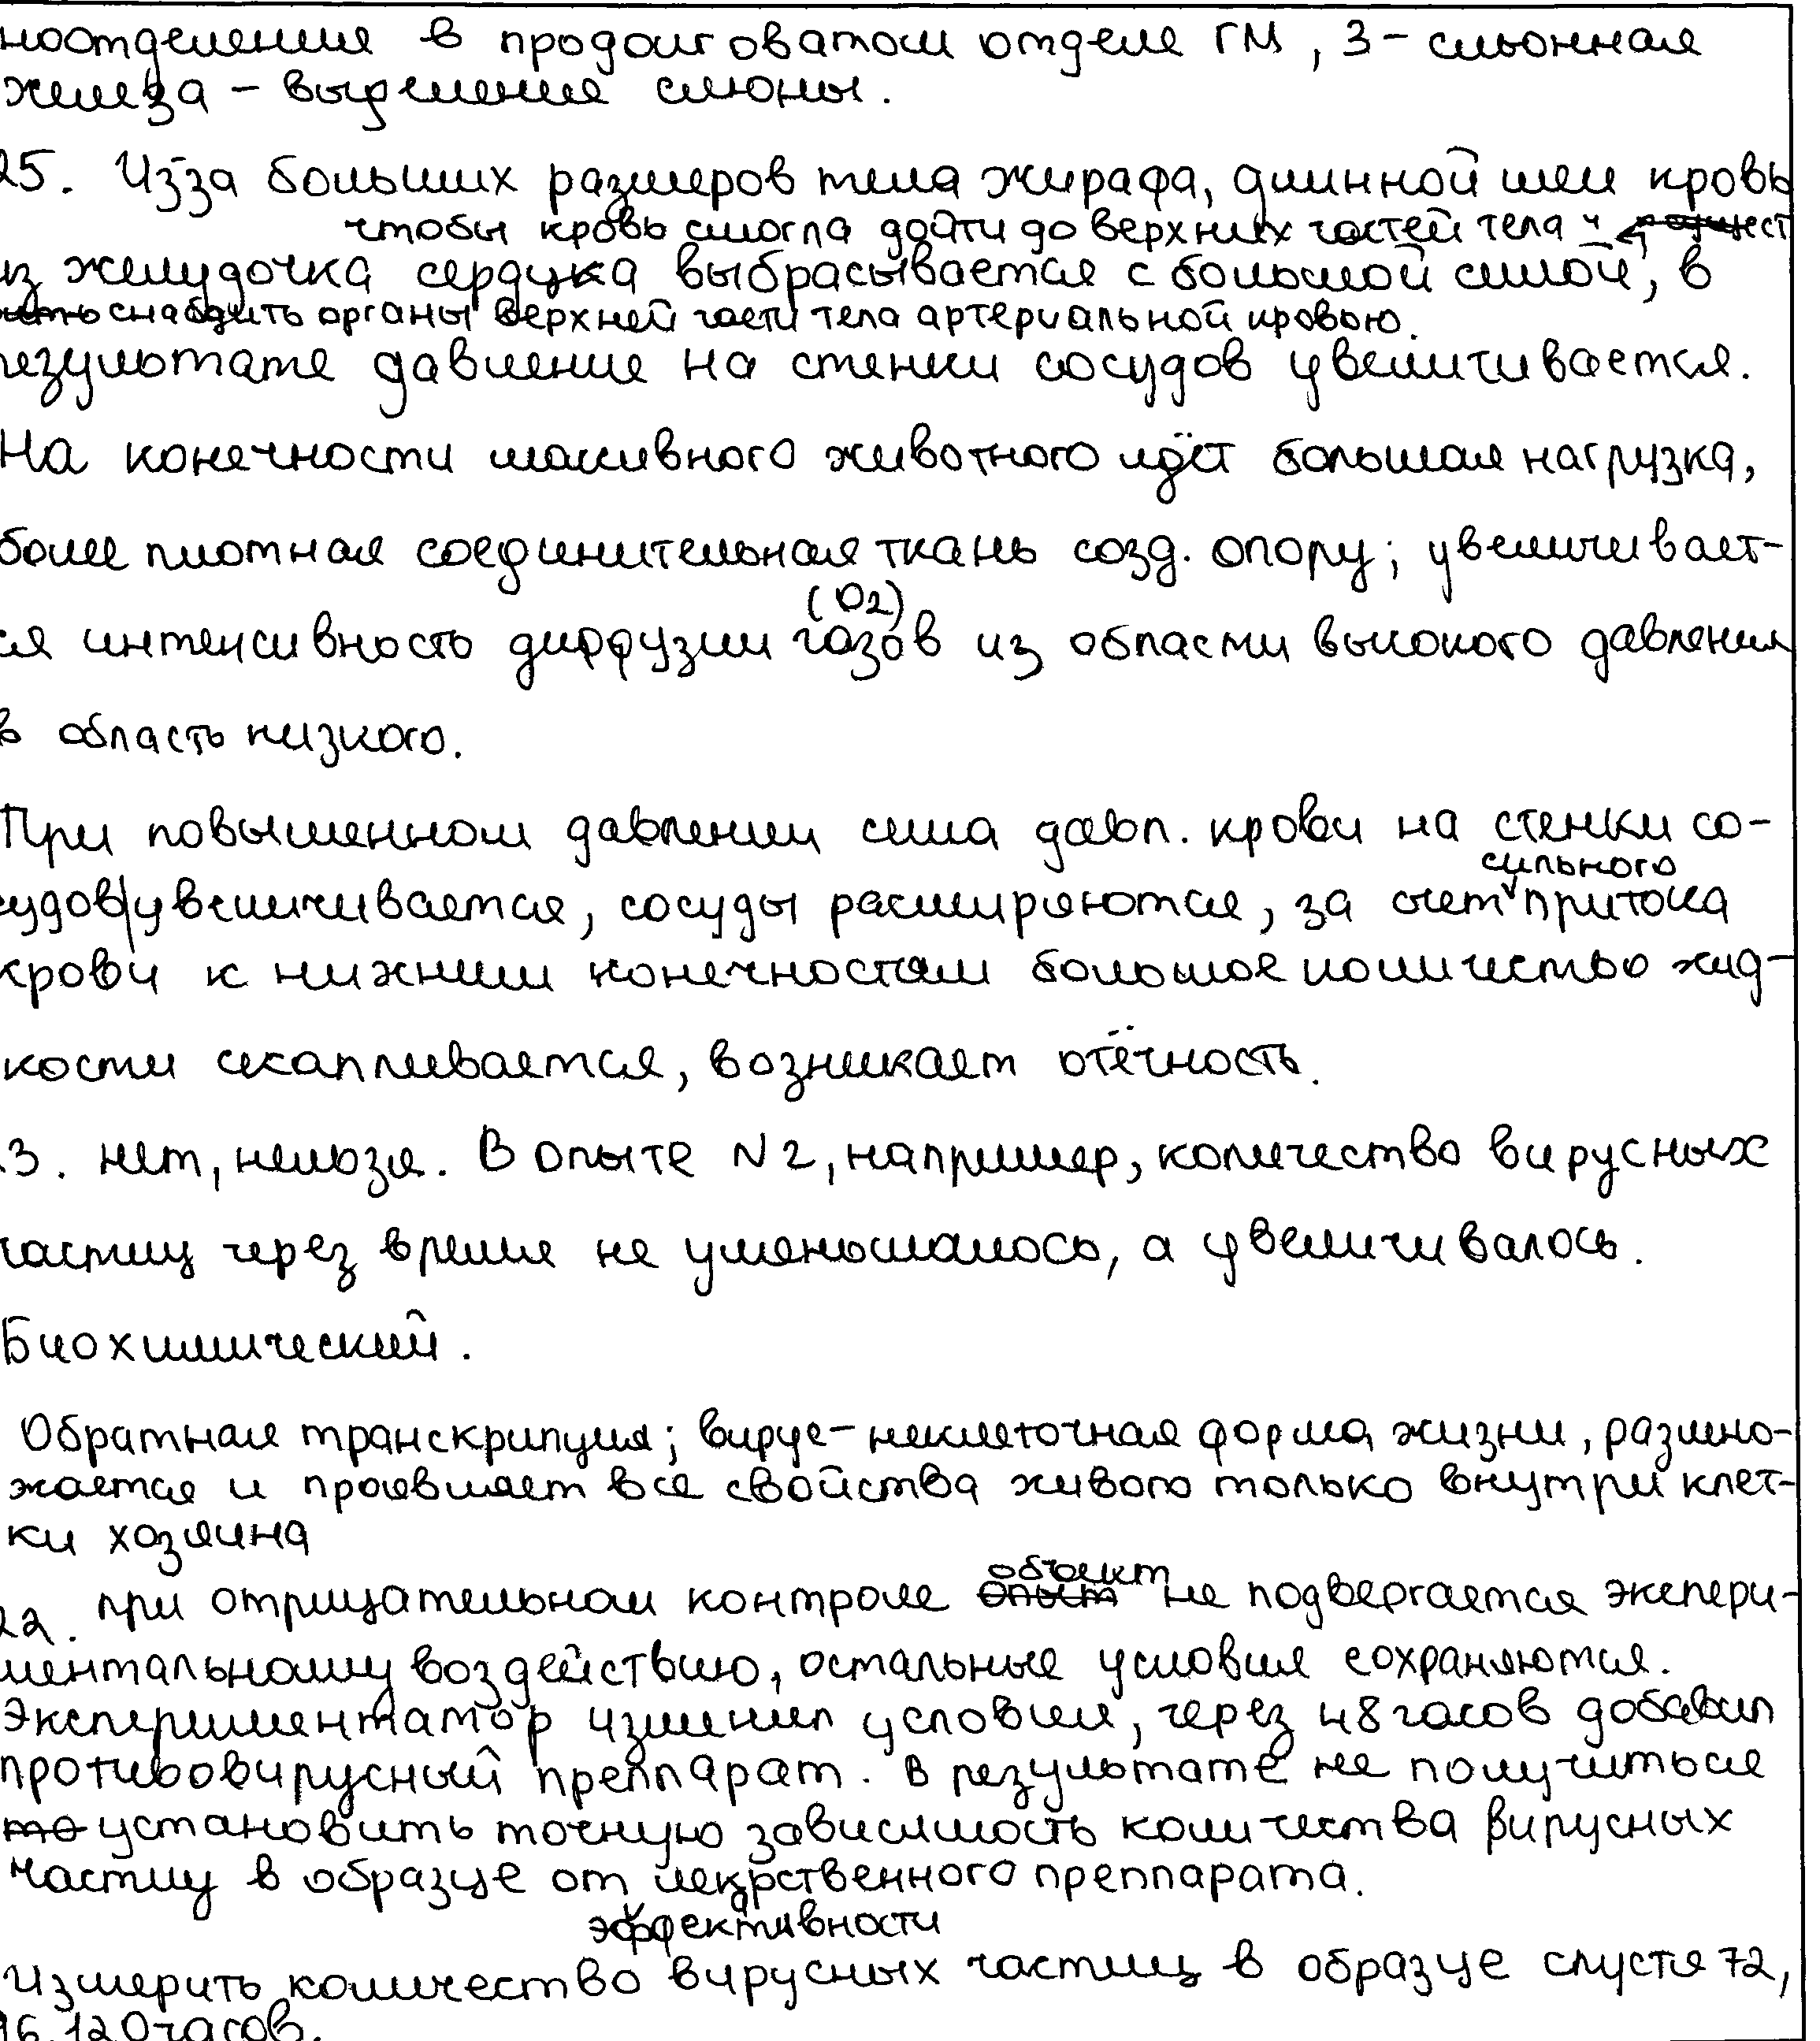 ноотделение в продолговатом отделе ГМ, 3 - слюнная
железа - выделение слюны.
25. Из-за больших размеров тела жирафа, длинной шеи кровь
чтобы кровь смогла дойти до верхних частей тела и
из желудочка сердца выбрасывается с большой силой, в
снабдить органы верхней части тела артериальной кровью.
результате давление на стенки сосудов увеличивается.
На конечности массивного животного идёт большая нагрузка,
более плотная соединительная ткань созд. опору; увеличивает-
(O2)
ся интенсивность диффузии газов из области высокого давления
в область низкого.
При повышенном давлении сила давл. крови на стенки со-
сильного
судов увеличивается, сосуды расширяются, за счет притока
крови к нижним конечностям большое количество жид-
кости скапливается, возникает отёчность.
3. нет, нельзя. В опыте N2, например, количество вирусных
частиц через время не уменьшалось, а увеличивалось.
Биохимический.
Обратная транскрипция; вирус - неклеточная форма жизни, размно-
жается и проявляет все свойства живого только внутри клет-
ки хозяина
объект
22. при отрицательном контроле опыт не подвергается экспери-
ментальному воздействию, остальные условия сохраняются.
Экспериментатор изменил условия, через 48 часов добавил
противовирусный преппарат. В результате не получиться
то установить точную зависимость количества вирусных
частиц в образце от лекрственного преппарата.
эффективности
Измерить количество вирусных частиц в образце спустя 72,
96, 120 часов.